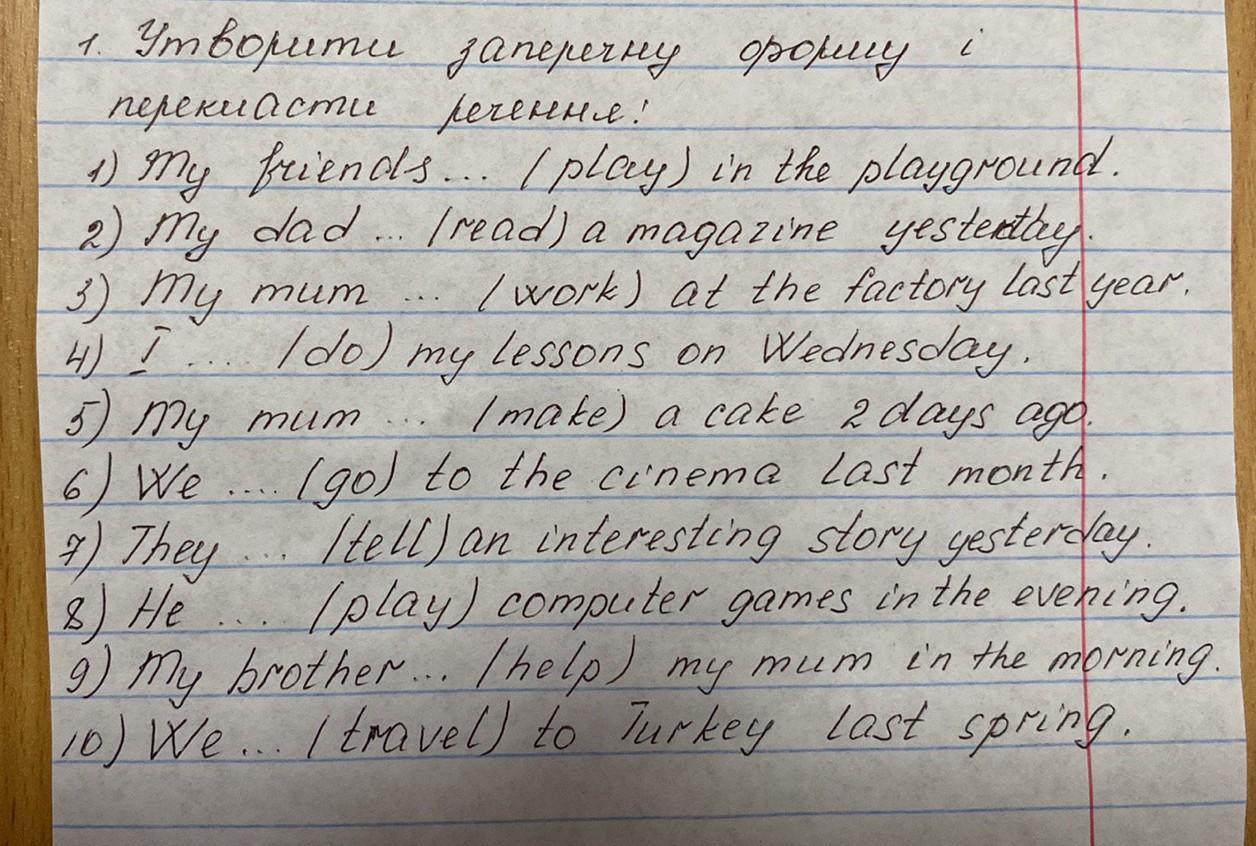 1. Утворити заперечну форму і
перекласти речення:
1) My friends... (play) in the playground.
2) My dad ... (read) a magazine yesterday.
3) My mum ... (work) at the factory last year.
4) I .... (do) my lessons on Wednesday.
5) My mum ... (make) a cake 2 days ago.
6) We .... (go) to the cinema last month.
7) They ... (tell) an interesting story yesterday.
8) He .... (play) computer games in the evening.
9) My brother... (help) my mum in the morning.
10) We... (travel) to Turkey last spring.